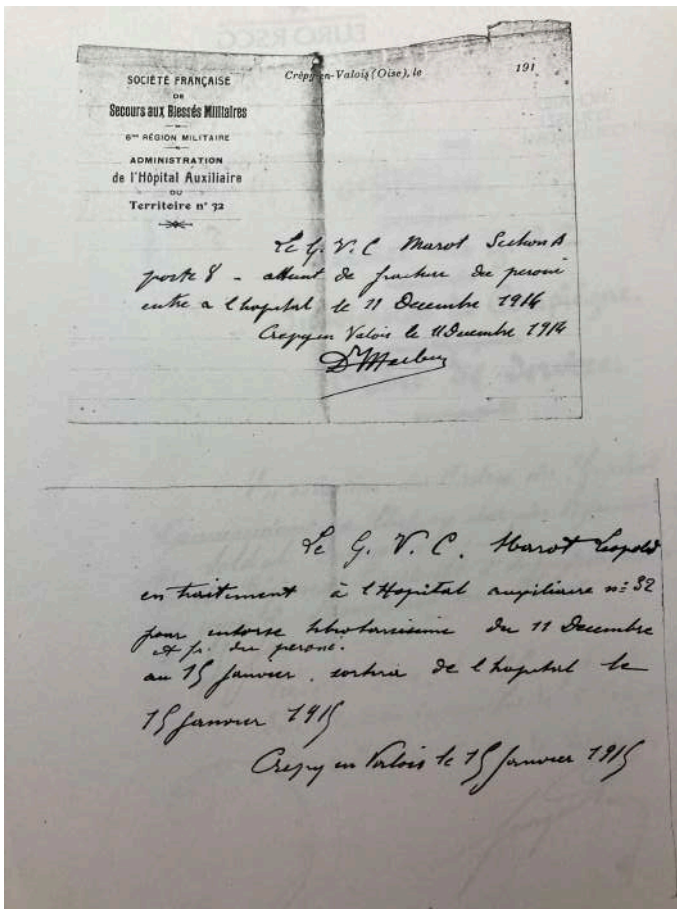 SOCIÉTÉ FRANÇAISE
DE
Secours aux Blessés Militaires
6me RÉGION MILITAIRE
ADMINISTRATION
de l'Hôpital Auxiliaire
DU
Territoire n° 32
Crépy-en-Valois (Oise), le 191
Le G. V. C Marot Section A
poste 8 - atteint de fracture du peroné
entre a l hopital le 11 Decembre 1914
Crepy en Valois le 11 Decembre 1914
Le G. V. C. Marot Leopold
en traitement à l'Hopital auxiliaire n° 32
pour entorse du 11 Decembre
et fr. du peroné.
au 15 Janvier. sortira de l hopital le
15 Janvier 1915
Crepy en Valois le 15 Janvier 1915